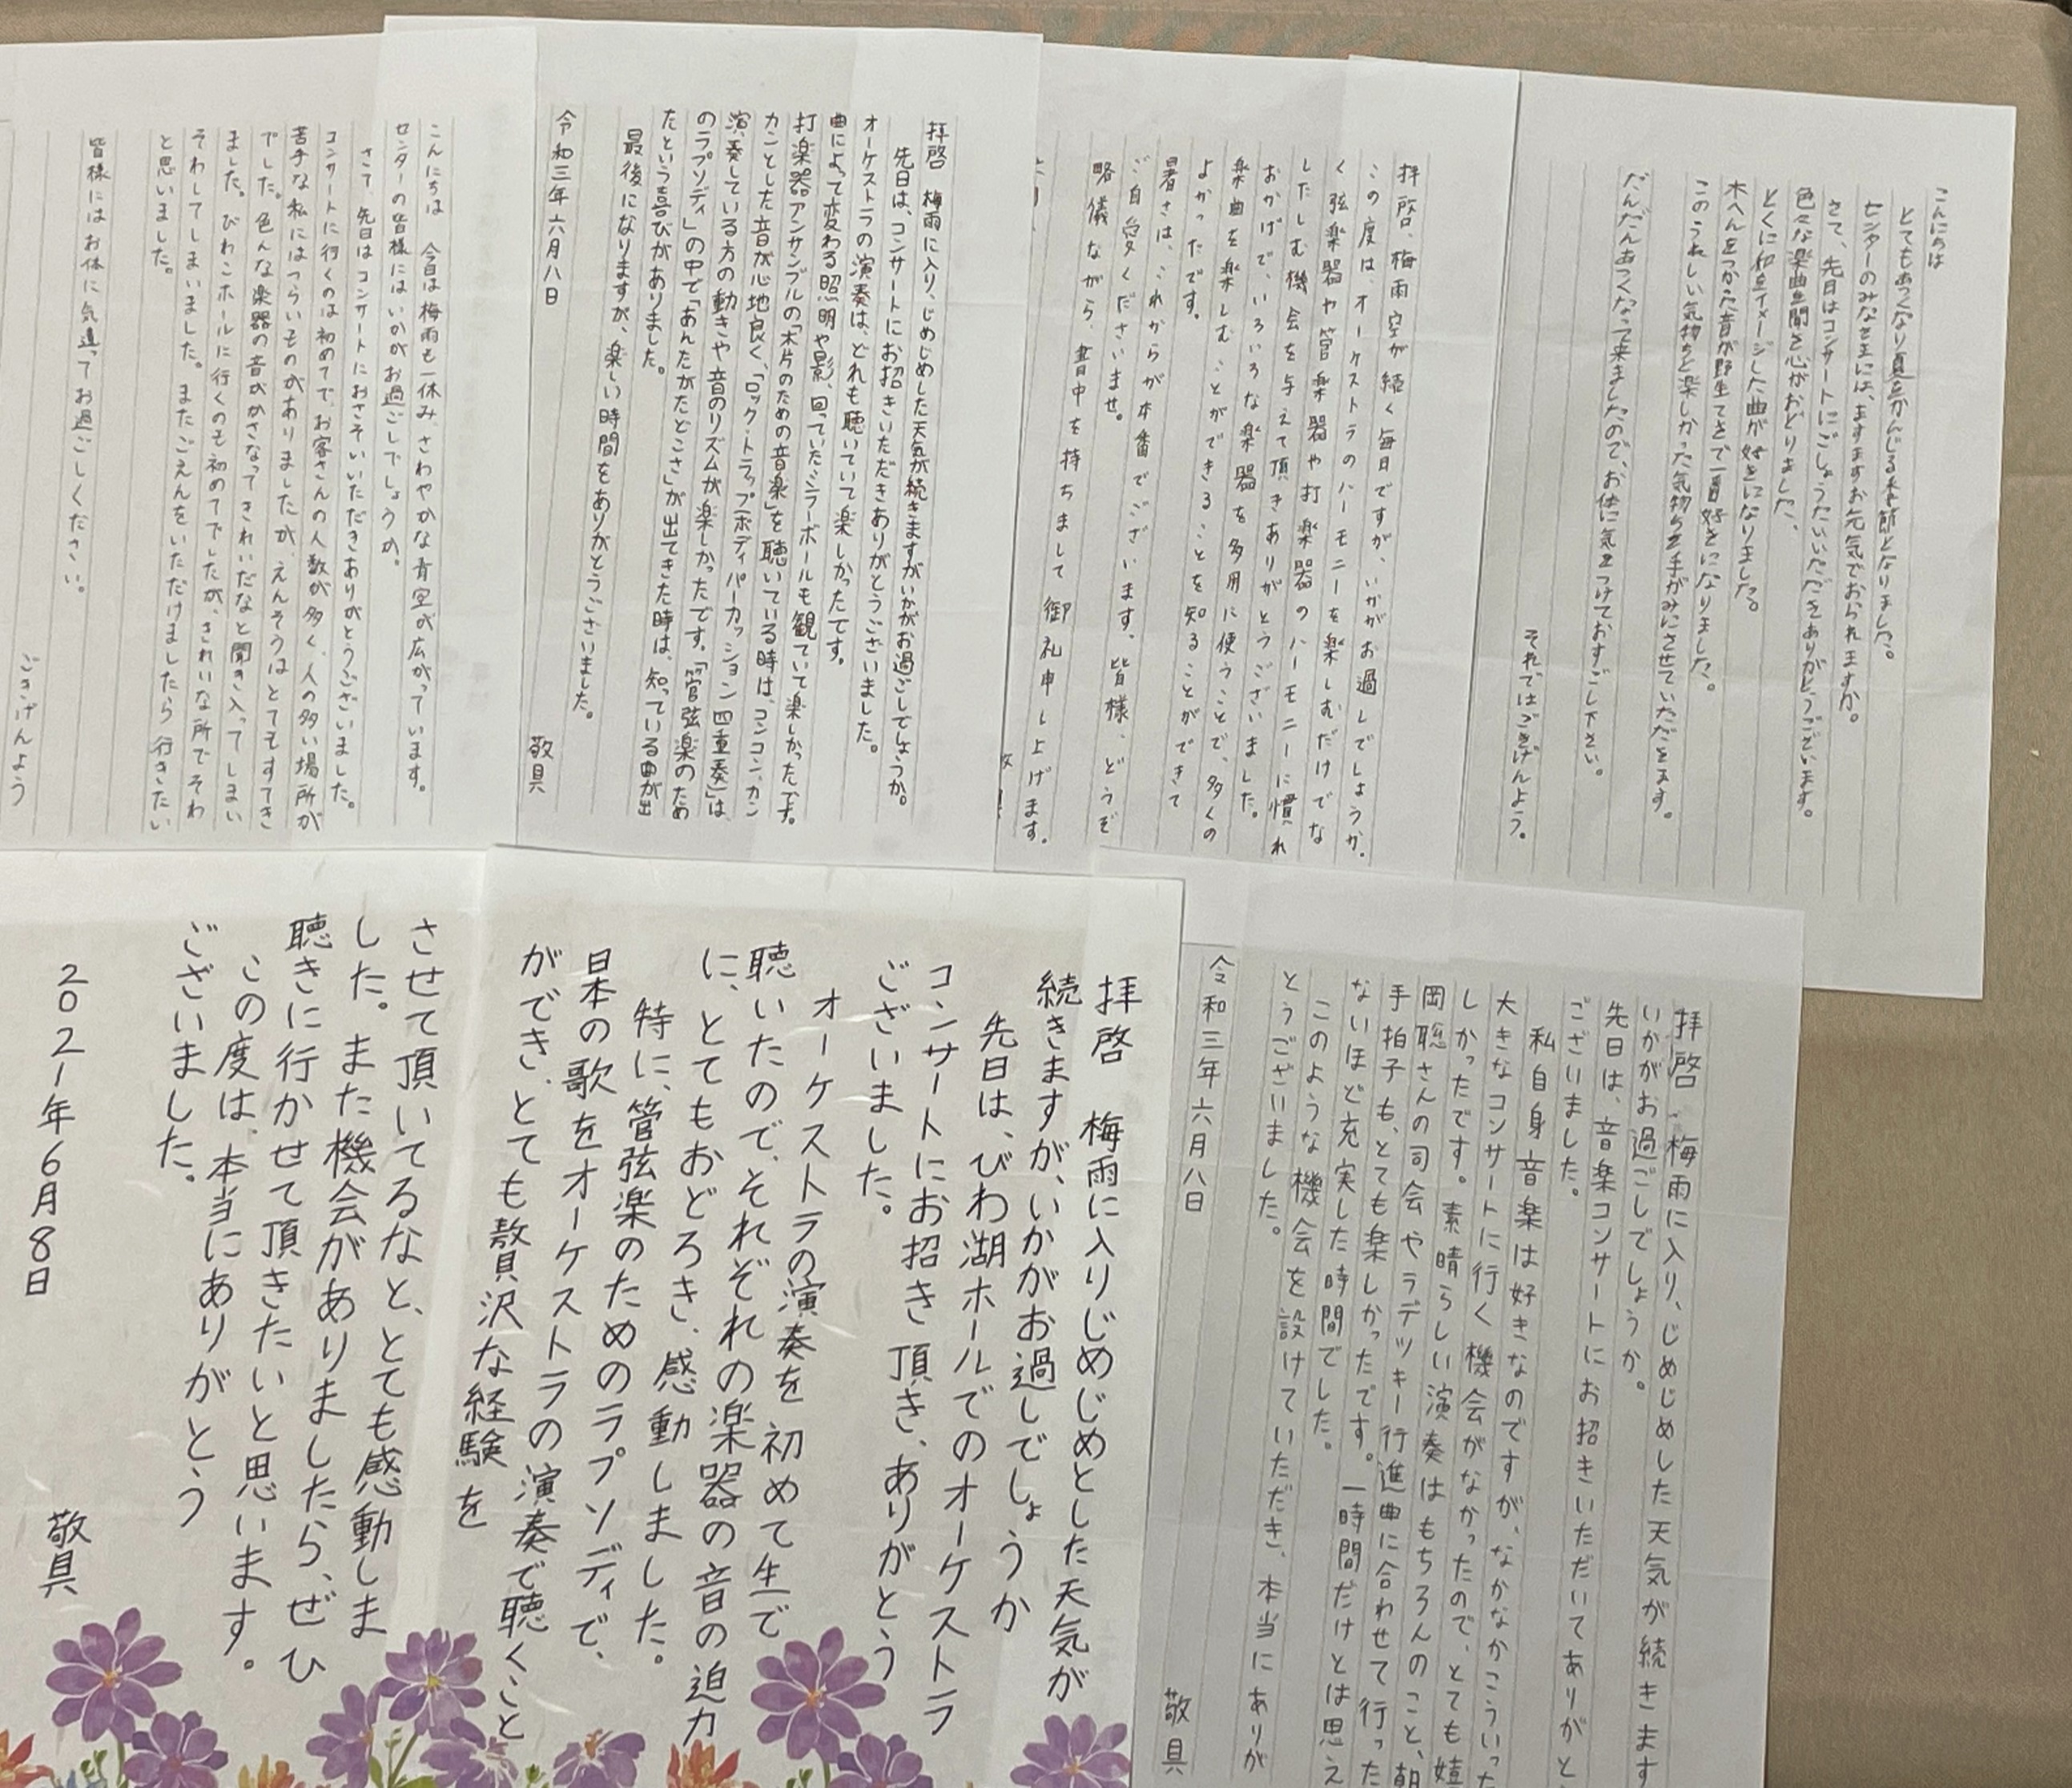 こんにちは
とてもあつくなり夏をかんじる季節となりました。
センターのみなさまには、ますますお元気でおられますか。
さて、先日はコンサートにごしょうたいいただきありがとうございます。
色々な楽曲を聞き心がおどりました。
とくに和をイメージした曲が好きになりました。
木へんをつかった音が野生てきで一番好きになりました。
このうれしい気持ちと楽しかった気持ちを手がみにさせていただきます。
だんだんあつくなって来ましたので、お体に気をつけておすごし下さい。
それではごきげんよう。
拝啓、梅雨空が続く毎日ですが、いかがお過しでしょうか。
この度は、オーケストラのハーモニーを楽しむだけでな
く弦楽器や管楽器や打楽器のハーモニーに慣れ
したしむ機会を与えて頂きありがとうございました。
おかげで、いろいろな楽器を多用に使うことで、多くの
楽曲を楽しむことができることを知ることができて
よかったです。
暑さは、これからが本番でございます。皆様、どうぞ
ご自愛くださいませ。
略儀ながら、書中を持ちまして御礼申し上げます。
拝啓 梅雨に入り、じめじめした天気が続きますがいかがお過ごしでしょうか。
先日は、コンサートにお招きいただきありがとうございました。
オーケストラの演奏は、どれも聴いていて楽しかったです。
曲によって変わる照明や影、回っていたミラーボールも観ていて楽しかったです。
打楽器アンサンブルの「木片のための音楽」を聴いている時は、コンコン、カン
カンとした音が心地良く、「ロック・トラップ-ボディパーカッション四重奏」は
演奏している方の動きや音のリズムが楽しかったです。「管弦楽のため
のラプソディ」の中で「あんたがたどこさ」が出てきた時は、知っている曲が出
たという喜びがありました。
最後になりますが、楽しい時間をありがとうございました。
令和三年六月八日
敬具
こんにちは 今日は梅雨も一休み、さわやかな青空が広がっています。
センターの皆様にはいかがお過ごしでしょうか。
さて、先日はコンサートにおさそいいただきありがとうございました。
コンサートに行くのは初めてで、お客さんの人数が多く、人の多い場所が
苦手な私にはつらいものがありましたが、えんそうはとてもすてき
でした。色んな楽器の音がかさなってきれいだなと聞き入ってしまい
ました。びわこホールに行くのも初めてでしたが、きれいな所でそわ
そわしてしまいました。またごえんをいただけましたら行きたい
と思いました。
皆様にはお体に気遣ってお過ごしください。
ごきげんよう
拝啓、梅雨に入り、じめじめした天気が続きます
いかがお過ごしでしょうか。
先日は、音楽コンサートにお招きいただいてありがと
ございました。
私自身音楽は好きなのですが、なかなかこういった
大きなコンサートに行く機会がなかったので、とても嬉
しかったです。素晴らしい演奏はもちろんのこと、朝
岡聡さんの司会やラデツキー行進曲に合わせて行った
手拍子も、とても楽しかったです。一時間だけとは思え
ないほど充実した時間でした。
このような機会を設けていただき、本当にありが
とうございました。
令和三年六月八日
敬具
拝啓 梅雨に入りじめじめとした天気が
続きますが、いかがお過しでしょうか
先日は、びわ湖ホールでのオーケストラ
コンサートにお招き頂き、ありがとう
ございました。
オーケストラの演奏を初めて生で
聴いたので、それぞれの楽器の音の迫力
に、とてもおどろき、感動しました。
特に、管弦楽のためのラプソディで、
日本の歌をオーケストラの演奏で聴くこと
ができ、とても贅沢な経験を
させて頂いてるなと、とても感動しま
した。また機会がありましたら、ぜひ
聴きに行かせて頂きたいと思います。
この度は、本当にありがとう
ございました。
2021年6月8日
敬具